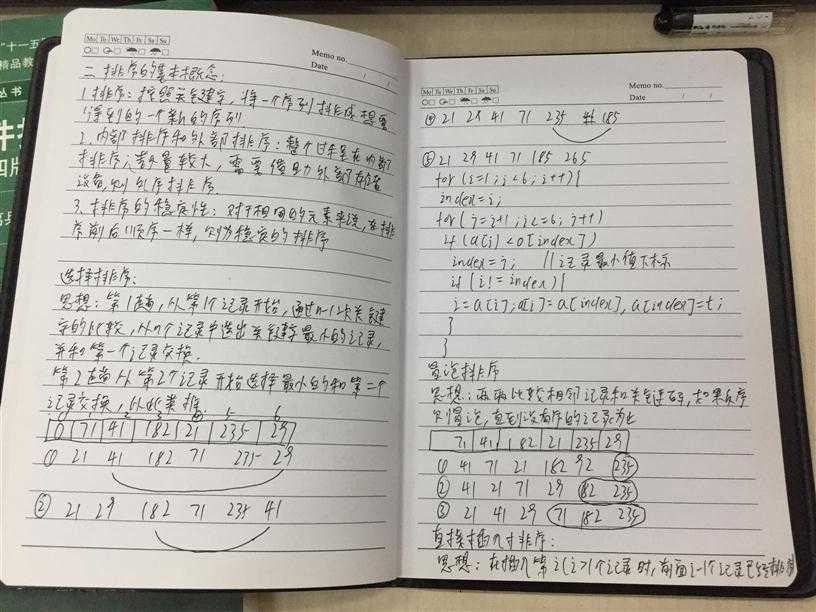 "十一五"
精品教
丛书
件
四版
Mo Tu We Th Fr Sa Su
Memo no.
Date / /
二、排序的基本概念:
1.排序: 按照关键字, 将一个序列排成想要
得到的一个新的序列
2.内部排序和外部排序: 整个过程在内部
排序; 数量较大, 需要借助外部存储
设备, 则外序排序
3.排序的稳定性: 对于相同的元素来说, 在排
序前后顺序一样, 则为稳定的排序
选择排序:
思想: 第1趟, 从第1个记录开始, 通过n-1次关键
字的比较, 从n个记录中选出关键字最小的记录,
并和第一个记录交换.
第2趟从第2个记录开始选择最小的和第二个
记录交换, 以此类推
0 71 41 182 21 235 29
① 21 41 182 71 235 29
② 21 29 182 71 235 41
Mo Tu We Th Fr Sa Su
Memo no.
Date / /
④ 21 29 41 71 235 185
⑤ 21 29 41 71 185 265
for (i=1; i<6; i++){
index=i;
for(j=i+1; j<=6; j++)
if (a[j]<a[index])
index=j; //记录最小值下标
if (i!=index){
t=a[i]; a[i]=a[index], a[index]=t;
}
}
冒泡排序
思想: 两两比较相邻记录和关键字, 如果反序
则冒泡, 直到没有序的记录为止
71 41 182 21 235 29
① 41 71 21 182 92 235
② 41 21 71 29 182 235
③ 21 41 29 71 182 235
直接插入排序:
思想: 在插入第i(i>1)个记录时, 前面i-1个记录已经排好